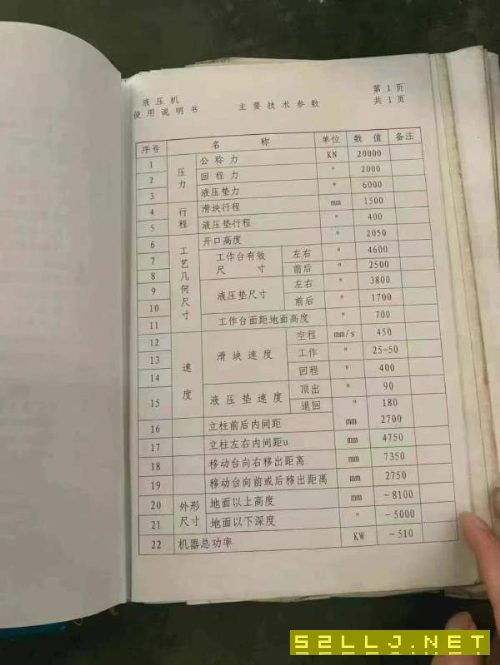 液压机
使用说明书 主要技术参数 第1页
共1页
序号 名称 单位 数值 备注
1 压力 公称力 KN 20000
2 回程力 " 2000
3 液压垫力 " 6000
4 行程 滑块行程 mm 1500
5 液压垫行程 " 400
6 工艺几何尺寸 开口高度 " 2050
7 工作台有效尺寸 左右 " 4600
8 前后 " 2500
9 液压垫尺寸 左右 " 3800
10 前后 " 1700
11 工作台面距地面高度 " 700
12 速度 滑块速度 空程 mm/s 450
13 工作 " 25~50
14 回程 " 400
15 液压垫速度 顶出 " 90
退回 " 180
16 立柱前后内间距 mm 2700
17 立柱左右内间距u mm 4750
18 移动台向右移出距离 mm 7350
19 移动台向前或后移出距离 mm 2750
20 外形尺寸 地面以上高度 mm ~8100
21 地面以下深度 " ~5000
22 机器总功率 KW ~510
52LLJ.NET